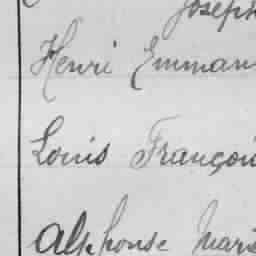 Joseph
Henri Emman
Louis Françoi
Alphonse Mari